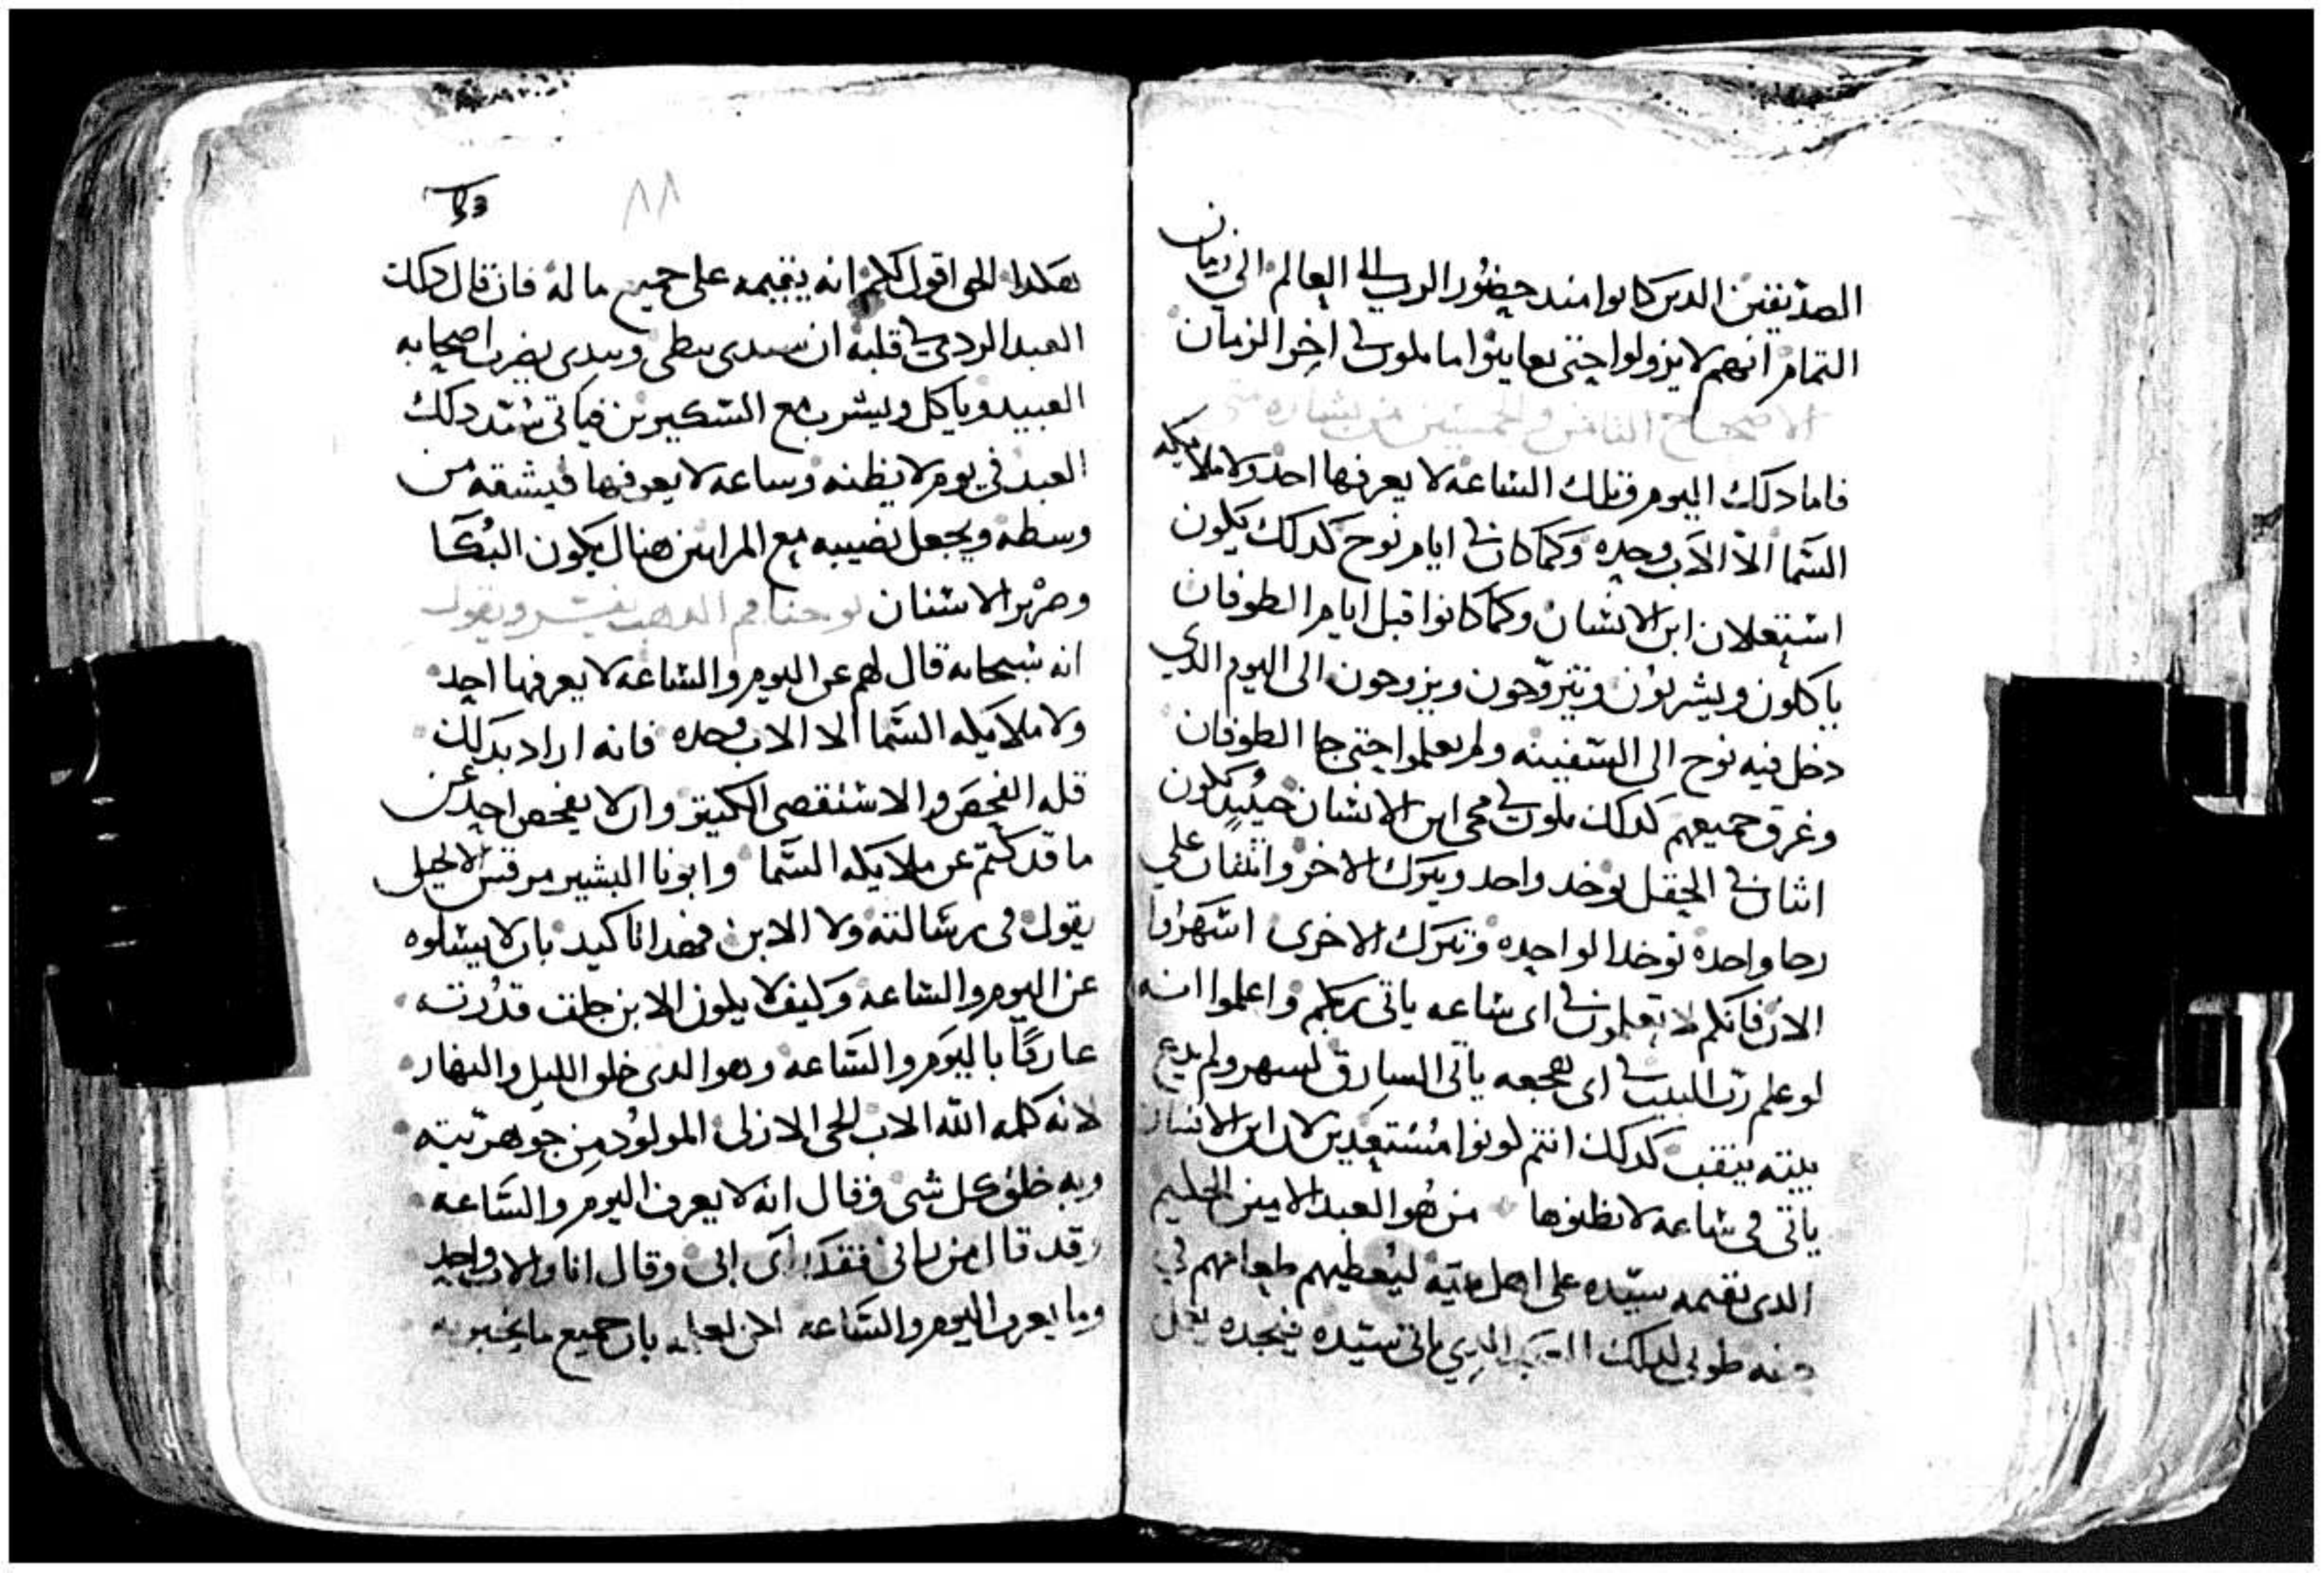 الصديقين الدين كانوا مند حضور الرب الى العالم الي زمان
التمام انهم لا يزولوا حتى يعاينوا ما يكون في اخر الزمان
الاصحاح الثامن والخمسين من بشاره متى
فاما دلك اليوم وتلك الساعه لا يعرفها احد ولا ملايكه
السما الا الاب وحده وكما كان في ايام نوح كدلك يكون
استعلان ابن الانسان وكما كانوا قبل ايام الطوفان
ياكلون ويشربون ويتزوجون ويزوجون الى اليوم الدي
دخل فيه نوح الى السفينه ولم يعلموا حتى جا الطوفان
وغرق جميعهم كدلك يكون مجى ابن الانسان حينيد يكون
اثنان في الحقل يوخد واحد ويترك الاخر واثنتان علي
رحا واحده توخد الواحده وتترك الاخرى اسهروا
الان فانكم لا تعلمون في اى ساعه ياتى ربكم واعلموا انه
لو علم رب البيت في اى هجعه ياتى السارق لسهر ولم يدع
بيته ينقب كدلك انتم كونوا مستعدين لان ابن الانسان
ياتى في ساعه لا تظنوها من هو العبد الامين الحليم
الدى يقيمه سيده على اهل بيته ليعطيهم طعامهم في
حينه طوبى لدلك العبد الدي ياتى سيده فيجده يفعل
٨٨
هكدا الحق اقول لكم انه يقيمه على جميع ماله فان قال دلك
العبد الردي في قلبه ان سيدى يبطى ويبدى يضرب اصحابه
العبيد وياكل ويشرب مع السكيرين فياتى سيد دلك
العبد في يوم لا يظنه وساعه لا يعرفها فيشقه من
وسطه ويجعل نصيبه مع المرايين هناك يكون البكا
وصرير الاسنان يوحنا فم الدهب يفسر ويقول
انه سبحانه قال لهم عن اليوم والساعه لا يعرفها احد
ولا ملايكه السما الا الاب وحده فانه اراد بدلك
قله الفحص والاستقصى الكتير وان لا يفحص احد عن
ما قد كتم عن ملايكه السما وابونا البشير مرقس الانجيلى
يقول في رسالته ولا الابن فهدا تاكيد بان لا يسالوه
عن اليوم والساعه وكيف لا يكون الابن جلت قدرته
عارفا باليوم والساعه وهو الدى خلق الليل والنهار
لانه كلمه الله الاب الحى الازلى المولود من جوهريته
وبه خلق كل شى وقال انه لا يعرف اليوم والساعه
وقد قال من رانى فقد راى ابى وقال انا والاب واحد
وما يعرف اليوم والساعه بان جميع ما يخبر به